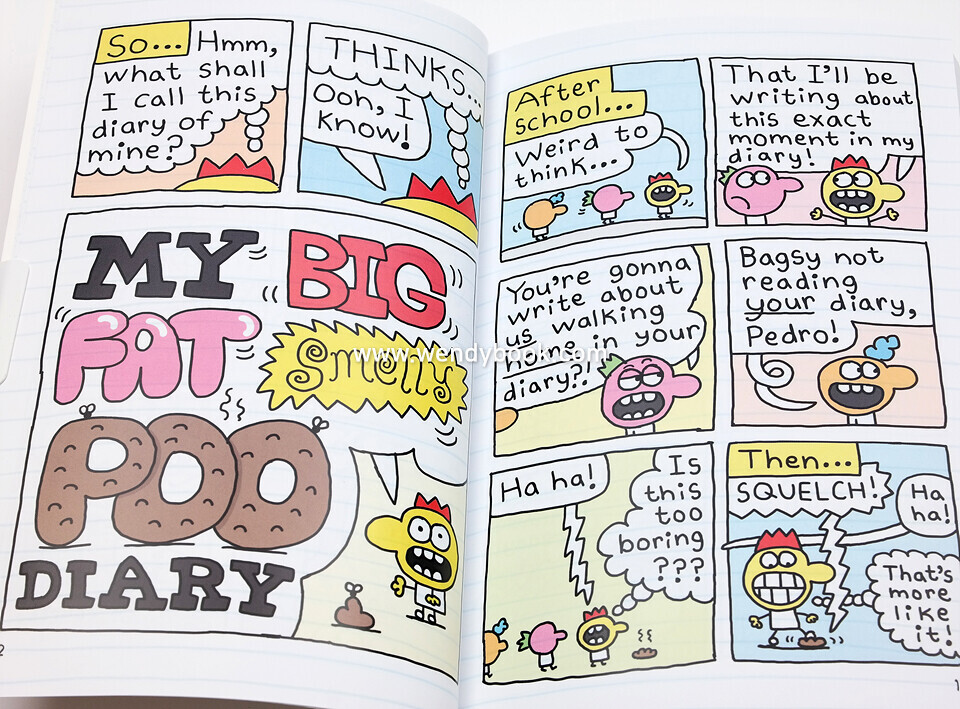 So... Hmm,
what shall
I call this
diary of
mine?
THINKS...
Ooh, I
know!
MY BIG
FAT Smelly
POO
DIARY
2
After
school...
Weird to
think...
That I'll be
writing about
this exact
moment in my
diary!
You're gonna
write about
us walking
home in your
diary?!
Bagsy not
reading
your diary,
Pedro!
Ha ha!
Is
this
too
boring
???
Then...
SQUELCH!
Ha
ha!
That's
more
like
it!
1
www.wendybook.com